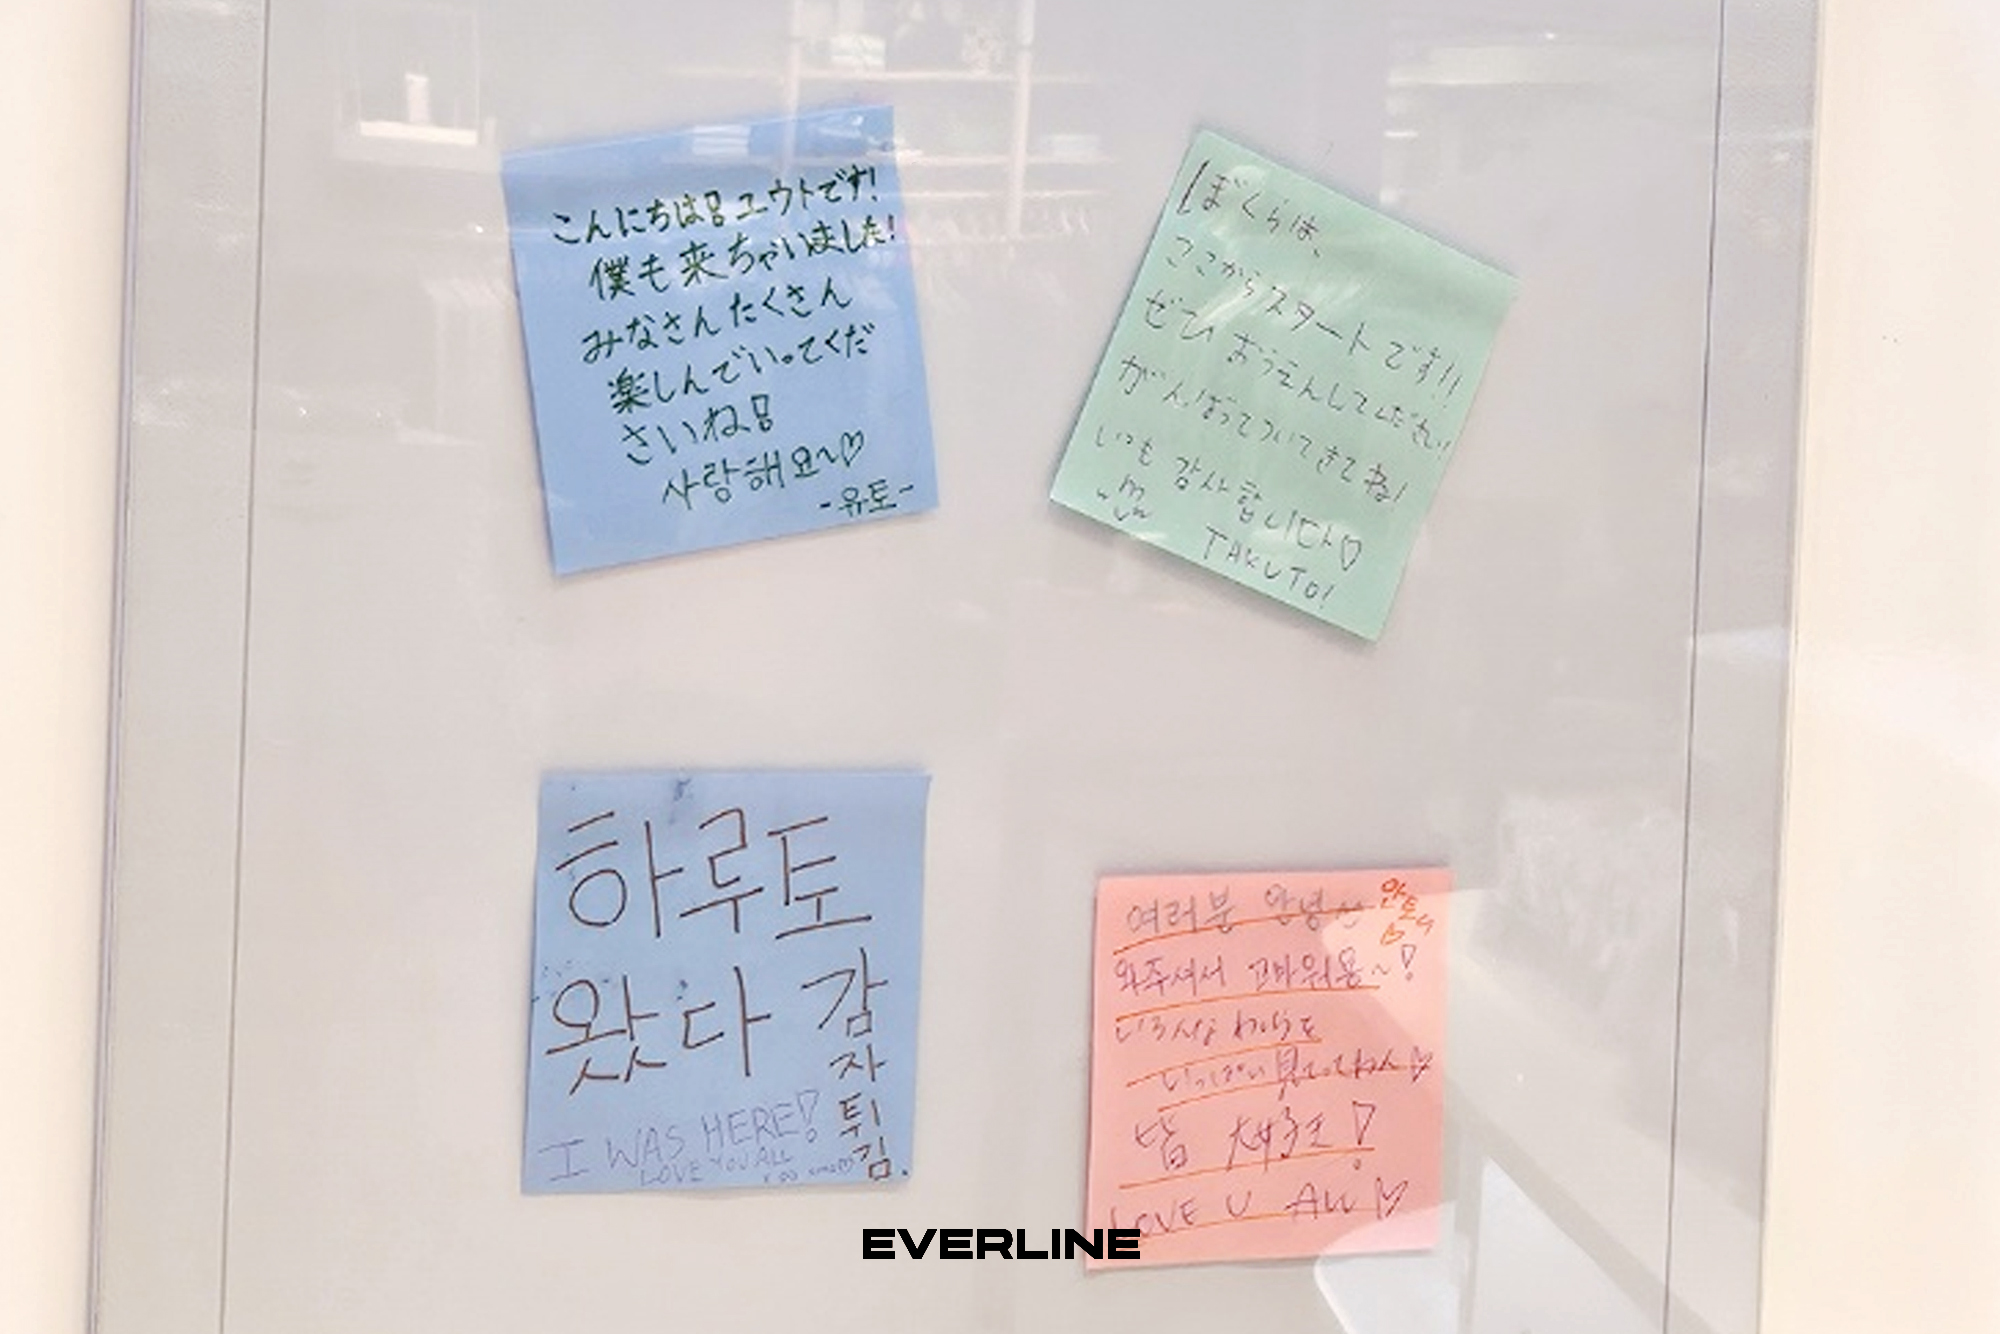 こんにちは!! ユウトです!
僕も来ちゃいました!
みなさんたくさん
楽しんでいってくだ
さいね!!
사랑해요~♡
-유토-
ぼくらは、
ここからスタートです!!
ぜひおうえんしてください!
がんばってついてきてね!
いつも 감사합니다♡
TAKUTO!
하루토
왔다
감자튀김.
I WAS HERE!
LOVE YOU ALL
여러분 안녕
안토니
♡
와주셔서 고마워용~!
いっぱい見てってねん♡
皆 大好き!
LOVE U ALL ♡
EVERLINE